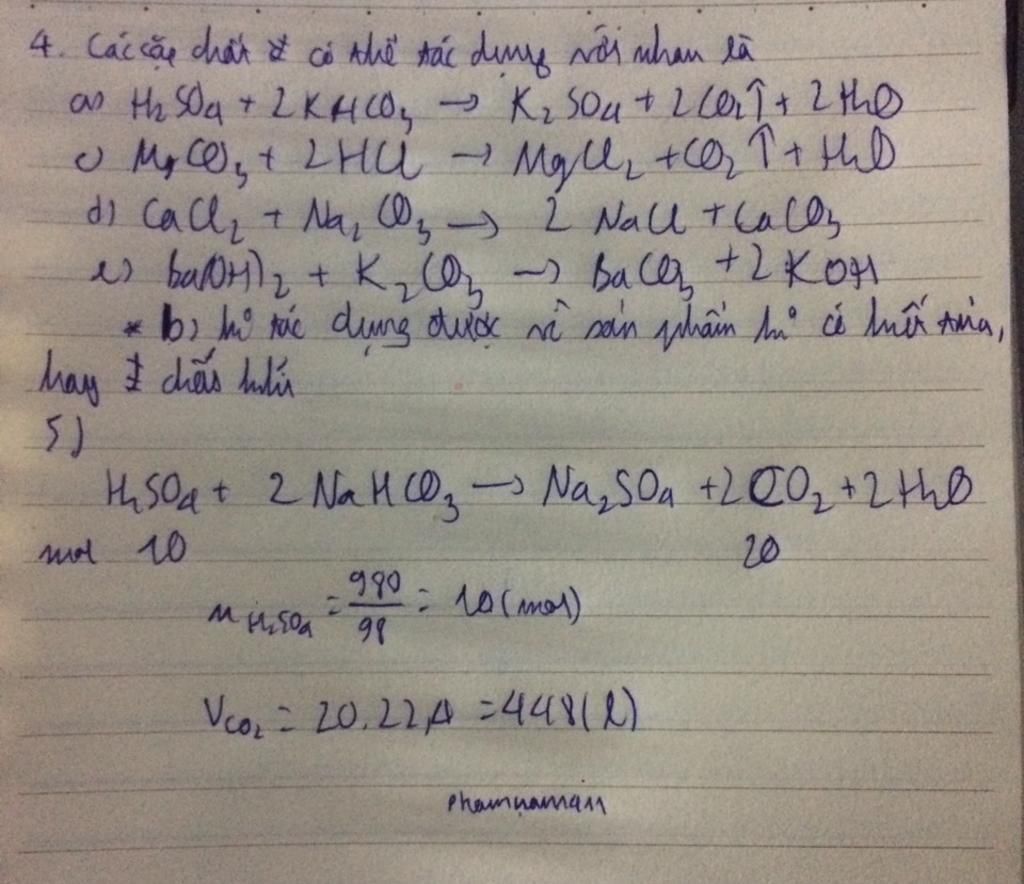 4. Các cặp chất có thể tác dụng với nhau là
a) H₂SO₄ + 2KHCO₃ → K₂SO₄ + 2CO₂↑ + 2H₂O
c) MgCO₃ + 2HCl → MgCl₂ + CO₂↑ + H₂O
d) CaCl₂ + Na₂CO₃ → 2 NaCl + CaCO₃
e) Ba(OH)₂ + K₂CO₃ → BaCO₃ + 2KOH
* b) k° tác dụng được vì sản phẩm k° có kết tủa,
hay chất khí
5)
H₂SO₄ + 2 NaHCO₃ → Na₂SO₄ + 2CO₂ + 2H₂O
mol 10 20
n H₂SO₄ = 980/98 = 10 (mol)
V CO₂ = 20.22,4 = 448(l)